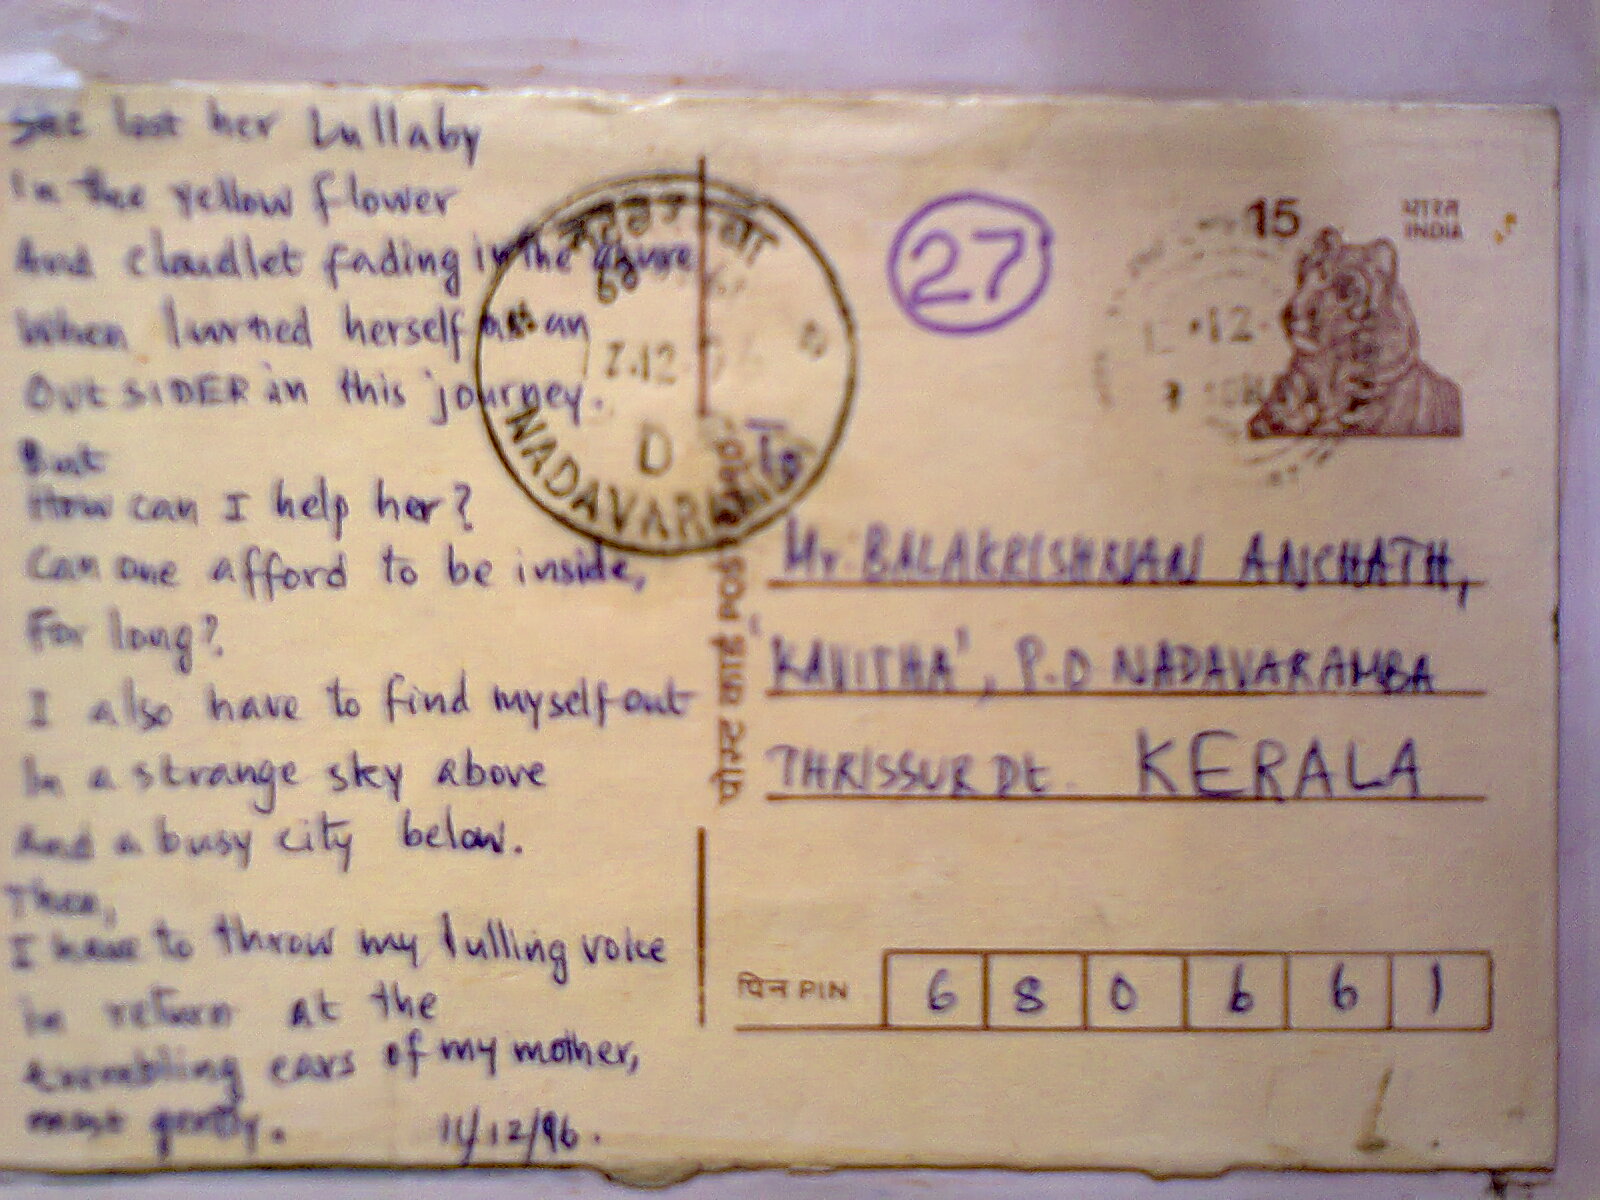 She lost her Lullaby
In the yellow flower
And cloudlet fading in the azure
When I turned herself as an
OUTSIDER in this journey.
But
How can I help her?
Can one afford to be inside,
For long?
I also have to find myself out
In a strange sky above
And a busy city below.
Then,
I have to throw my lulling voice
in return at the
trembling ears of my mother,
most gently.
11/12/96.
NADAVARAMBA
D
27
15
भारत
INDIA
पोस्ट कार्ड POST
Mr. BALAKRISHNAN ANCHATH,
'KAVITHA', P.O NADAVARAMBA
THRISSUR Dt. KERALA
पिन PIN 6 8 0 6 6 1